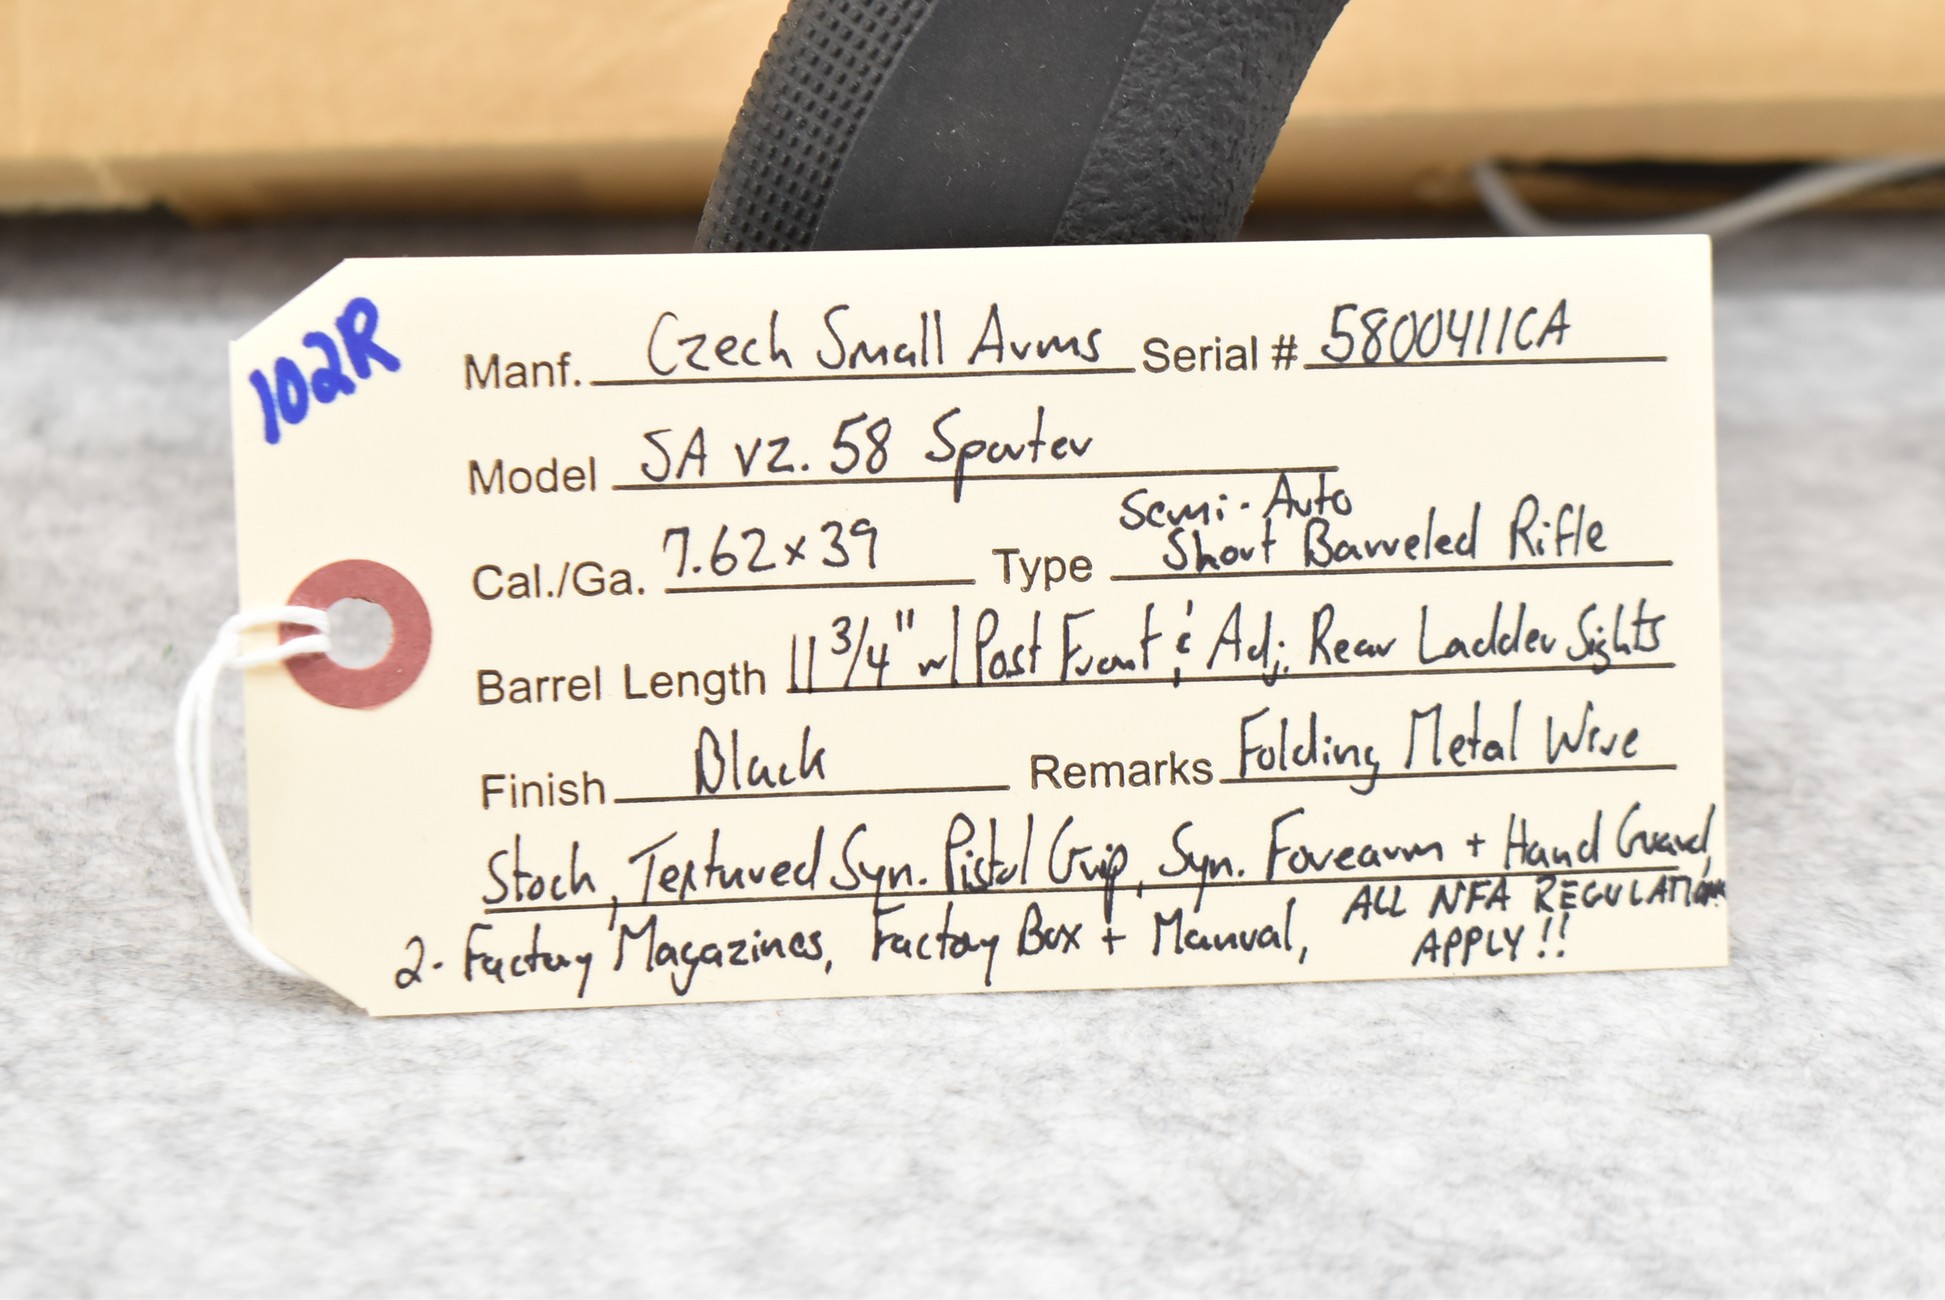 102R
Manf. Czech Small Arms Serial # 5800411CA
Model SA vz. 58 Sporter
Cal./Ga. 7.62x39 Type Semi-Auto Short Barreled Rifle
Barrel Length 11 3/4" w/ Post Front & Adj. Rear Ladder Sights
Finish Black Remarks Folding Metal Wire
Stock, Textured Syn. Pistol Grip, Syn. Forearm + Hand Guard,
2-Factory Magazines, Factory Box + Manual, ALL NFA REGULATIONS
APPLY!!